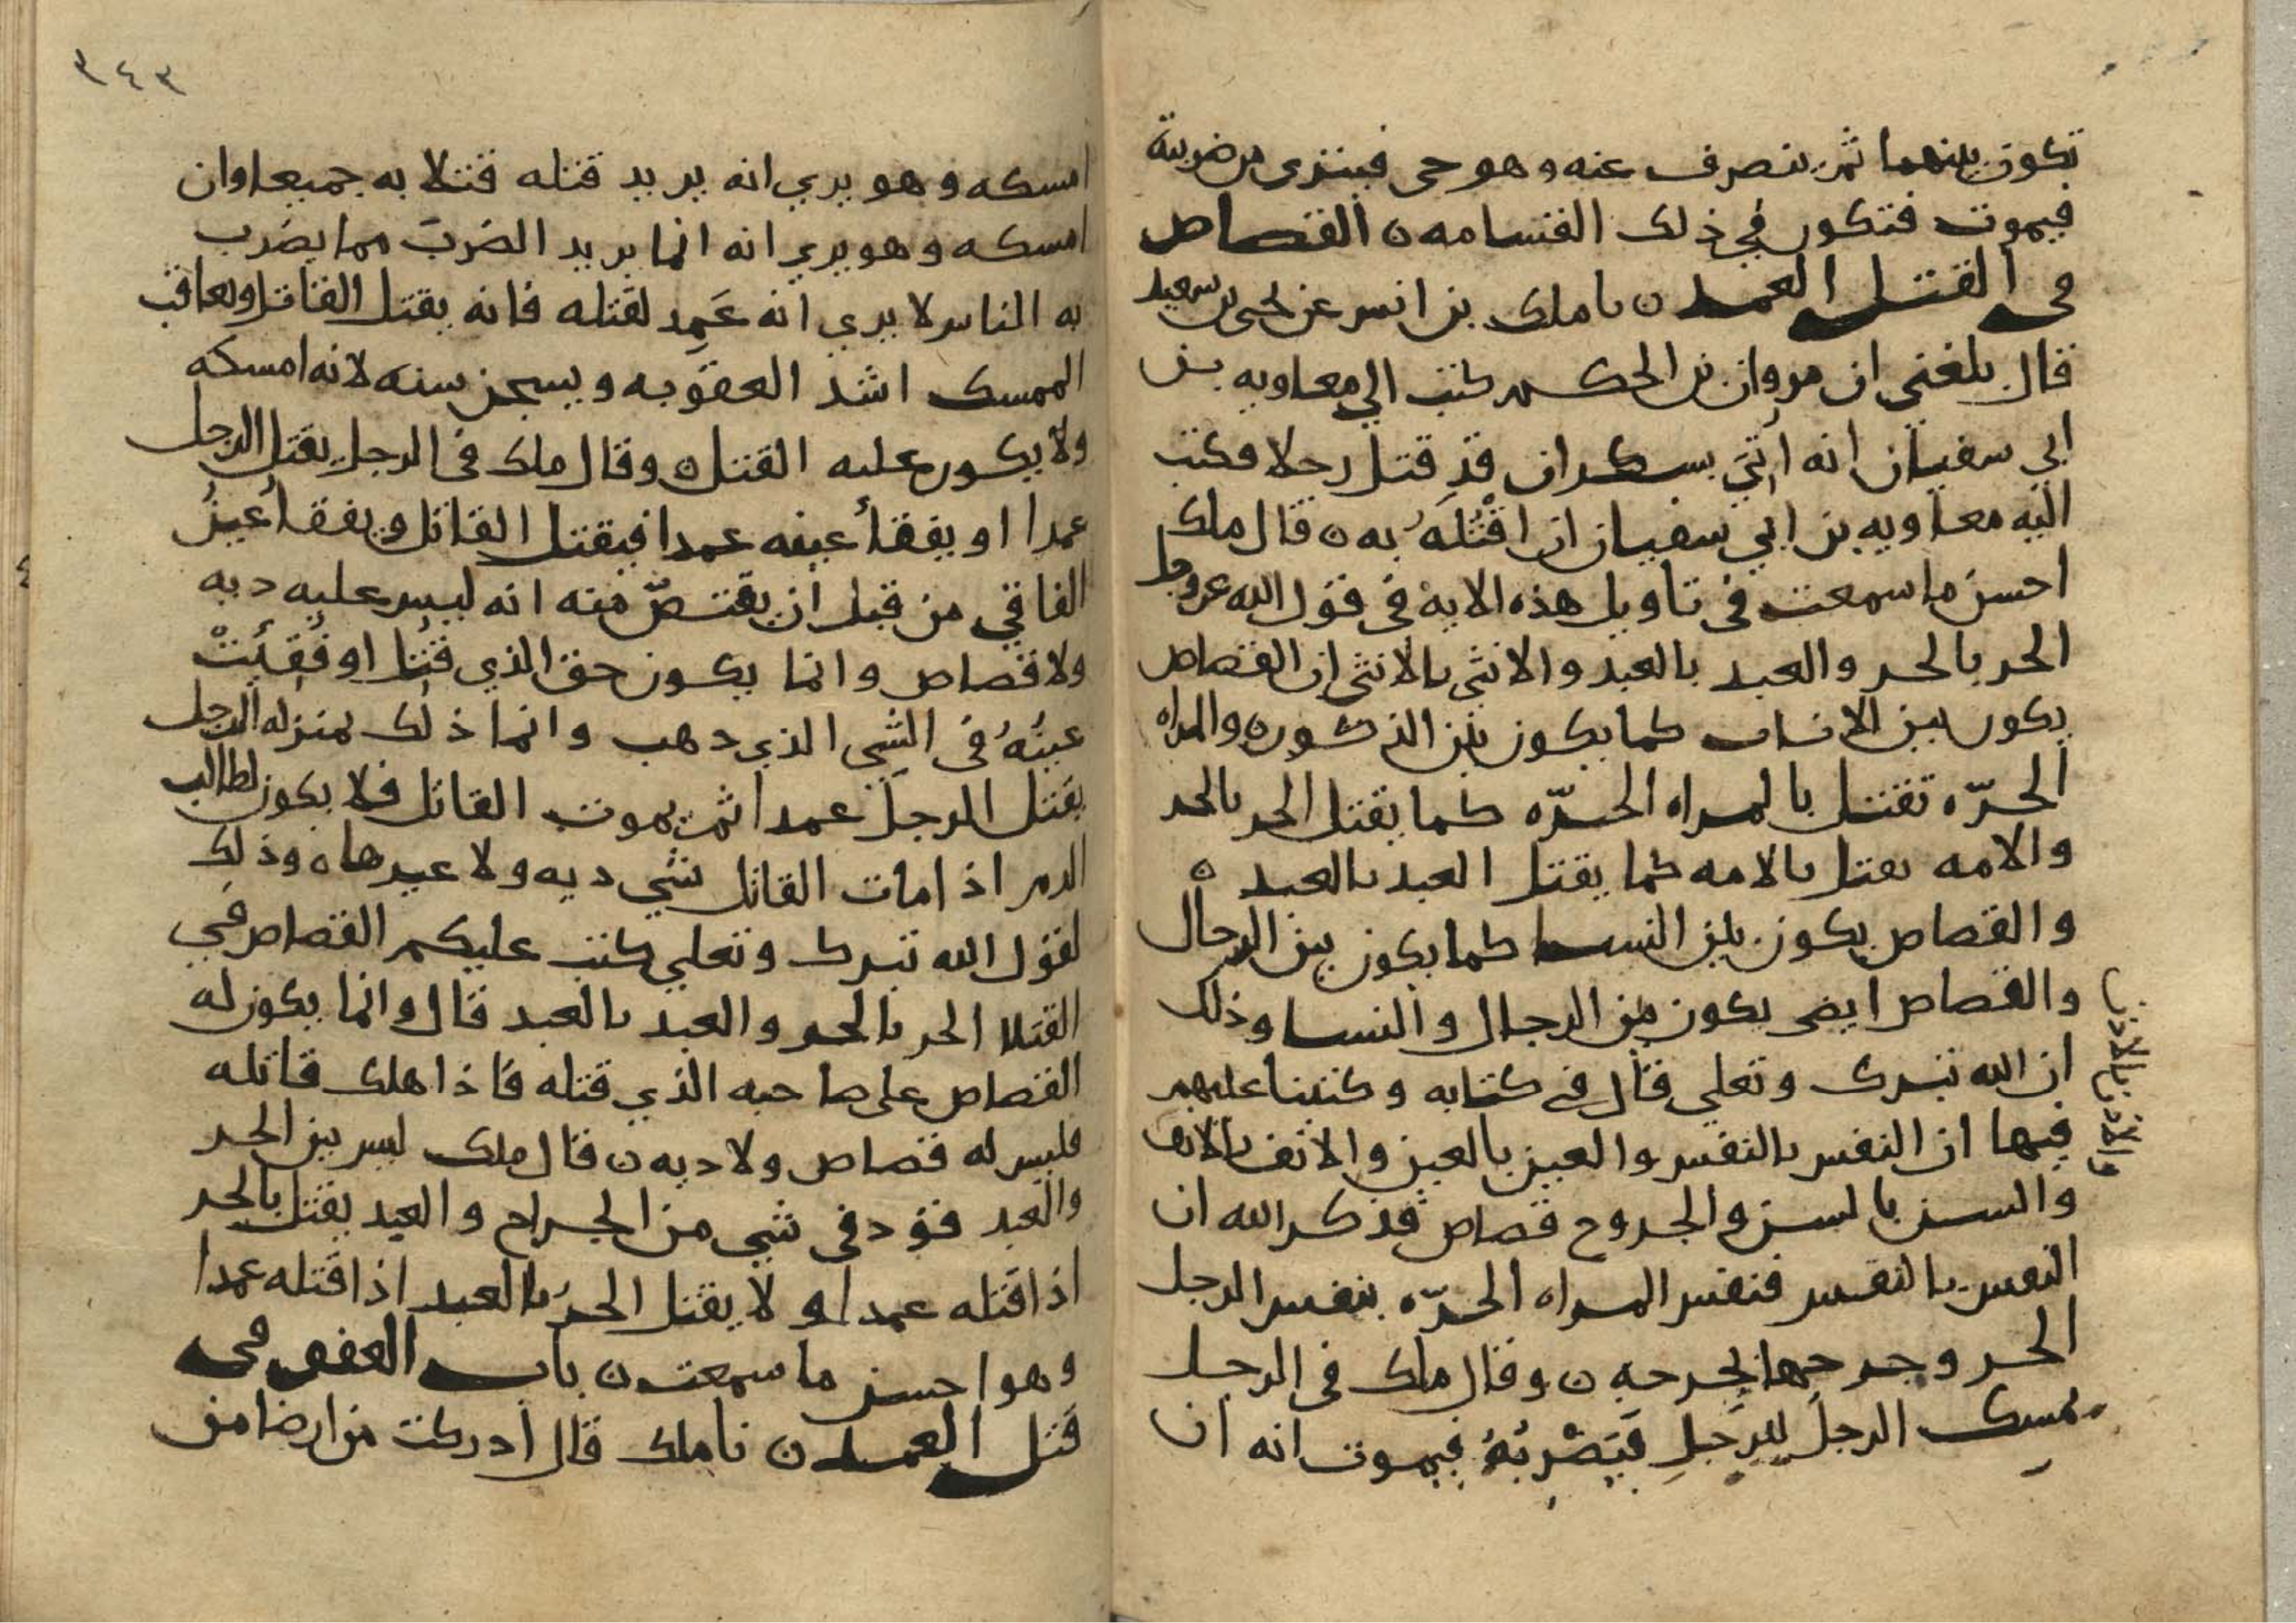 تكون بينهما ثم ينصرف عنه وهو حي فينزى من ضربته
فيموت فتكون في ذلك القسامه ن القصاص
في القتل العمد ن نا ملك بن انس عن يحيى بن سعيد
قال بلغني ان مروان بن الحكم كتب الي معاويه بن
ابي سفيان انه أُتِيَ بسكران قد قتل رجلا فكتب
اليه معاويه بن ابي سفيان ان اقْتُلْهُ به ن قال ملك
احسن ما سمعت في تاويل هذه الايه في قول الله عز وجل
الحر بالحر والعبد بالعبد والانثي بالانثي ان القصاص
يكون بين الاناث كما يكون بين الذكور ن والمراه
الحرّه تقتل بالمراه الحرّه كما يقتل الحر بالحر
والامه تقتل بالامه كما يقتل العبد بالعبد ن
والقصاص يكون بين النسا كما يكون بين الرجال
والقصاص ايضى يكون بين الرجال والنسا وذلك
ان الله تبرك وتعلي قال في كتابه وكتبنا عليهم
فيها ان النفس بالنفس والعين بالعين والانف بالانف
والاذن بالاذن
والسن بالسن والجروح قصاص فذكر الله ان
النفس بالنفس فنفس المراه الحرّه بنفس الرجل
الحر وجرحها بجرحه ن وقال ملك في الرجل
يمسك الرجلَ للرجلِ فيَضْرِبُهُ فيموت انه ان
٣٤٣
امسكه وهو يري انه يريد قتله قتلا به جميعا وان
امسكه وهو يري انه انما يريد الضرب مما يضرب
به الناس لا يري انه عَمِد لقتله فانه يقتل القاتل ويعاقب
الممسك اشد العقوبه ويسجن سنه لانه امسكه
ولا يكون عليه القتل ن وقال ملك في الرجل يقتل الرجل
عمدا او يفقأ عينه عمدا فيقتل القاتل او يفقأ عينُ
الفاقي من قبل ان يقتصّ منه انه ليس عليه ديه
ولا قصاص وانما يكون حق الذي قُتِل او فُقِئَتْ
عينُهُ في الشي الذي ذهب وانما ذلك بمنزله الرجل
يقتل الرجلَ عمدا ثم يموت القاتل فلا يكون لطالب
الدم اذا مات القاتل شي ديه ولا غيرها ن وذلك
لقول الله تبرك وتعلي كتب عليكم القصاص في
القتلا الحر بالحر والعبد بالعبد قال وانما يكون له
القصاص على صاحبه الذي قتله فاذا هلك قاتله
فليس له قصاص ولا ديه ن قال ملك ليس بين الحر
والعبد قود في شي من الجراح والعبد يقتل بالحر
اذا قتله عمدا ولا يقتل الحرُ بالعبد اذا قتله عمدا
وهو احسن ما سمعت ن باب العفو في
قتل العمد ن نا ملك قال ادركت من ارضا من